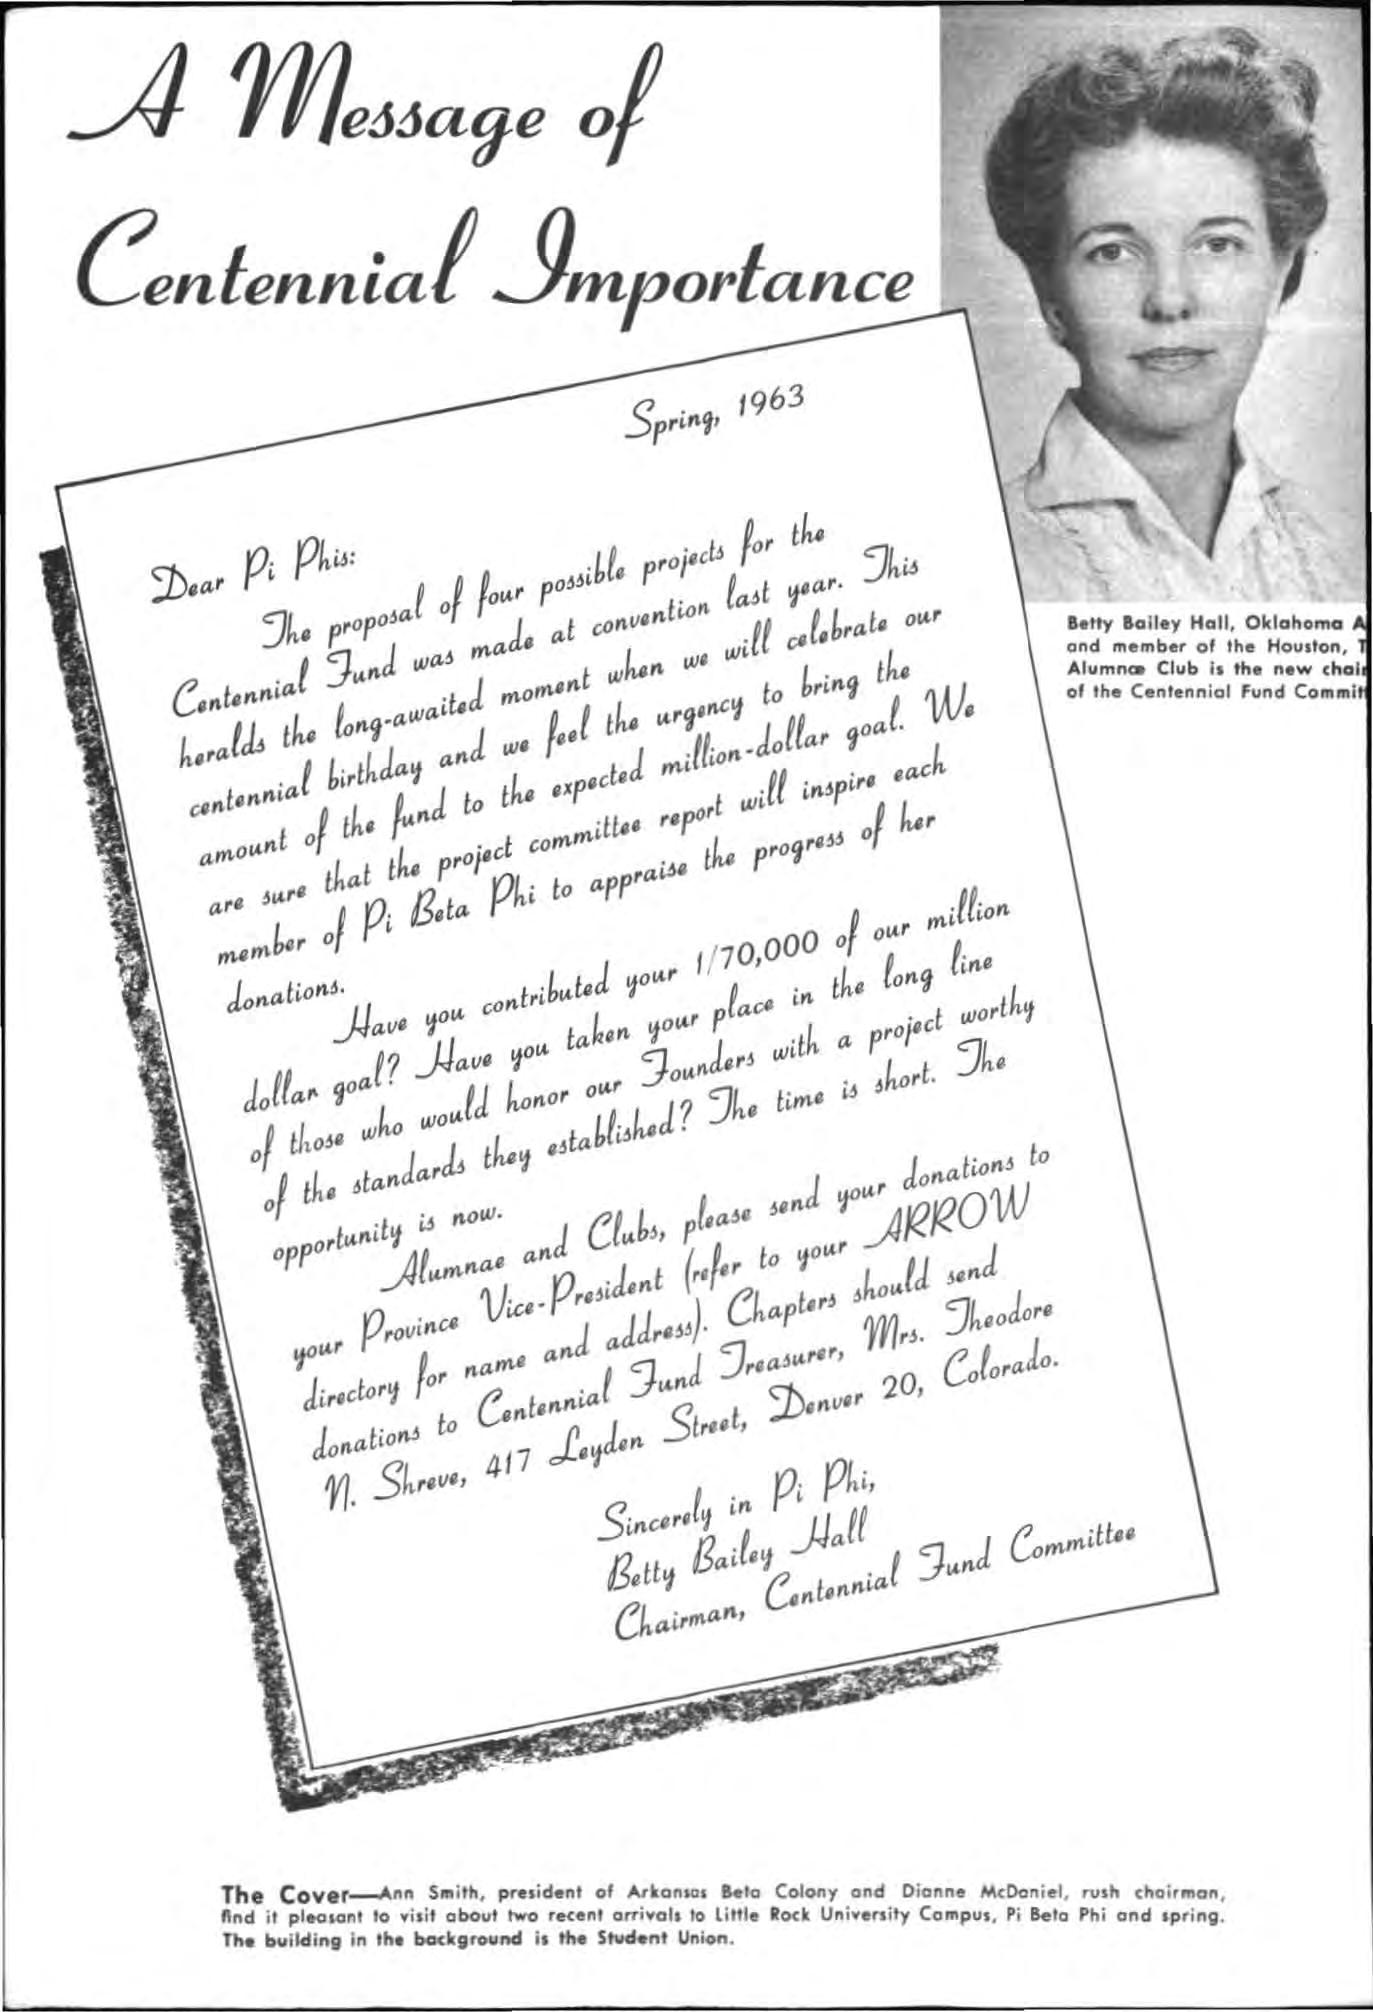 A Message of
Centennial Importance
Betty Bailey Hall, Oklahoma A
and member of the Houston, T
Alumnæ Club is the new chai
of the Centennial Fund Commit
Spring, 1963
Dear Pi Phis:
The proposal of four possible projects for the
Centennial Fund was made at convention last year. This
heralds the long-awaited moment when we will celebrate our
centennial birthday and we feel the urgency to bring the
amount of the fund to the expected million-dollar goal. We
are sure that the project committee report will inspire each
member of Pi Beta Phi to appraise the progress of her
donations.
Have you contributed your 1/70,000 of our million
dollar goal? Have you taken your place in the long line
of those who would honor our Founders with a project worthy
of the standards they established? The time is short. The
opportunity is now.
Alumnae and Clubs, please send your donations to
your Province Vice-President (refer to your ARROW
directory for name and address). Chapters should send
donations to Centennial Fund Treasurer, Mrs. Theodore
N. Shreve, 417 Leyden Street, Denver 20, Colorado.
Sincerely in Pi Phi,
Betty Bailey Hall
Chairman, Centennial Fund Committee
The Cover—Ann Smith, president of Arkansas Beta Colony and Dianne McDaniel, rush chairman,
find it pleasant to visit about two recent arrivals to Little Rock University Campus, Pi Beta Phi and spring.
The building in the background is the Student Union.